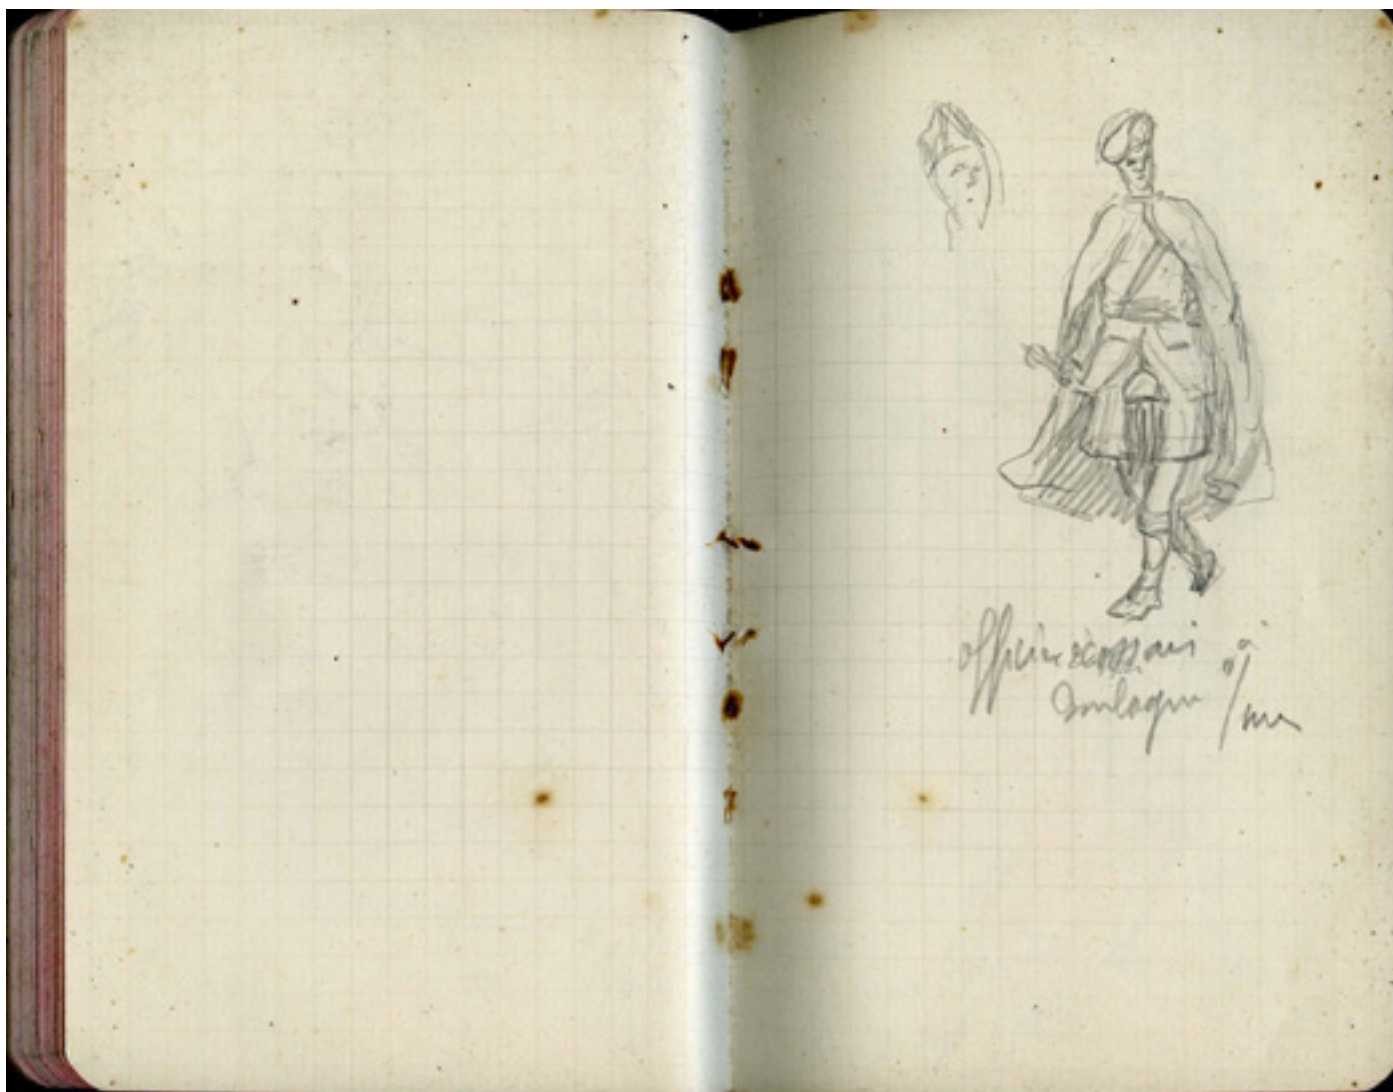 officier écossais à
Boulogne s/mer